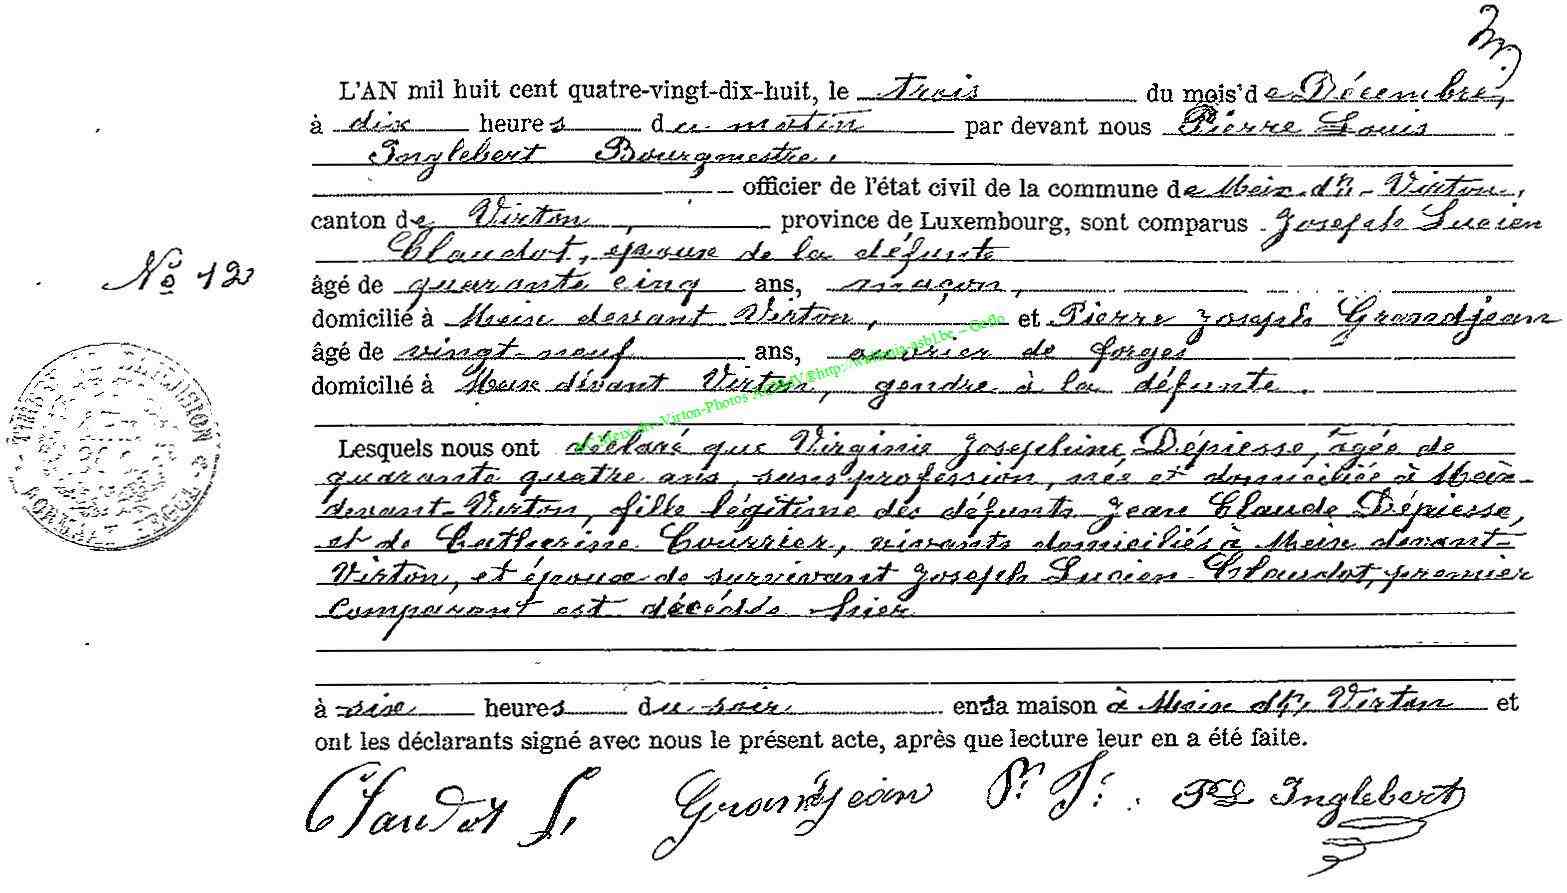 L'AN mil huit cent quatre-vingt-dix-huit, le trois du mois de Décembre,
à dix heures du matin par devant nous Pierre Louis
Inglebert Bourgmestre,
officier de l'état civil de la commune de Meix-dt-Virton,
canton de Virton, province de Luxembourg, sont comparus Joseph Lucien
Claudot, époux de la défunte
No 12
âgé de quarante cinq ans, maçon,
domicilié à Meix devant Virton, et Pierre Joseph Grandjean
âgé de vingt-neuf ans, ouvrier de forges
domicilié à Meix devant Virton, gendre à la défunte.
Meix-dt-Virton-Photos
Lesquels nous ont déclaré que Virginie Joséphine Dépiesse, âgée de
quarante quatre ans, sans profession, née et domiciliée à Meix-
devant-Virton, fille légitime des défunts Jean Claude Dépiesse,
et de Catherine Courrier, vivants domiciliés à Meix devant-
Virton, et épouse de survivant Joseph Lucien Claudot, premier
comparant est décédée hier
à six heures du soir en la maison à Meix dt Virton et
ont les déclarants signé avec nous le présent acte, après que lecture leur en a été faite.
Claudot L, Grandjean Pr Jh. P L Inglebert